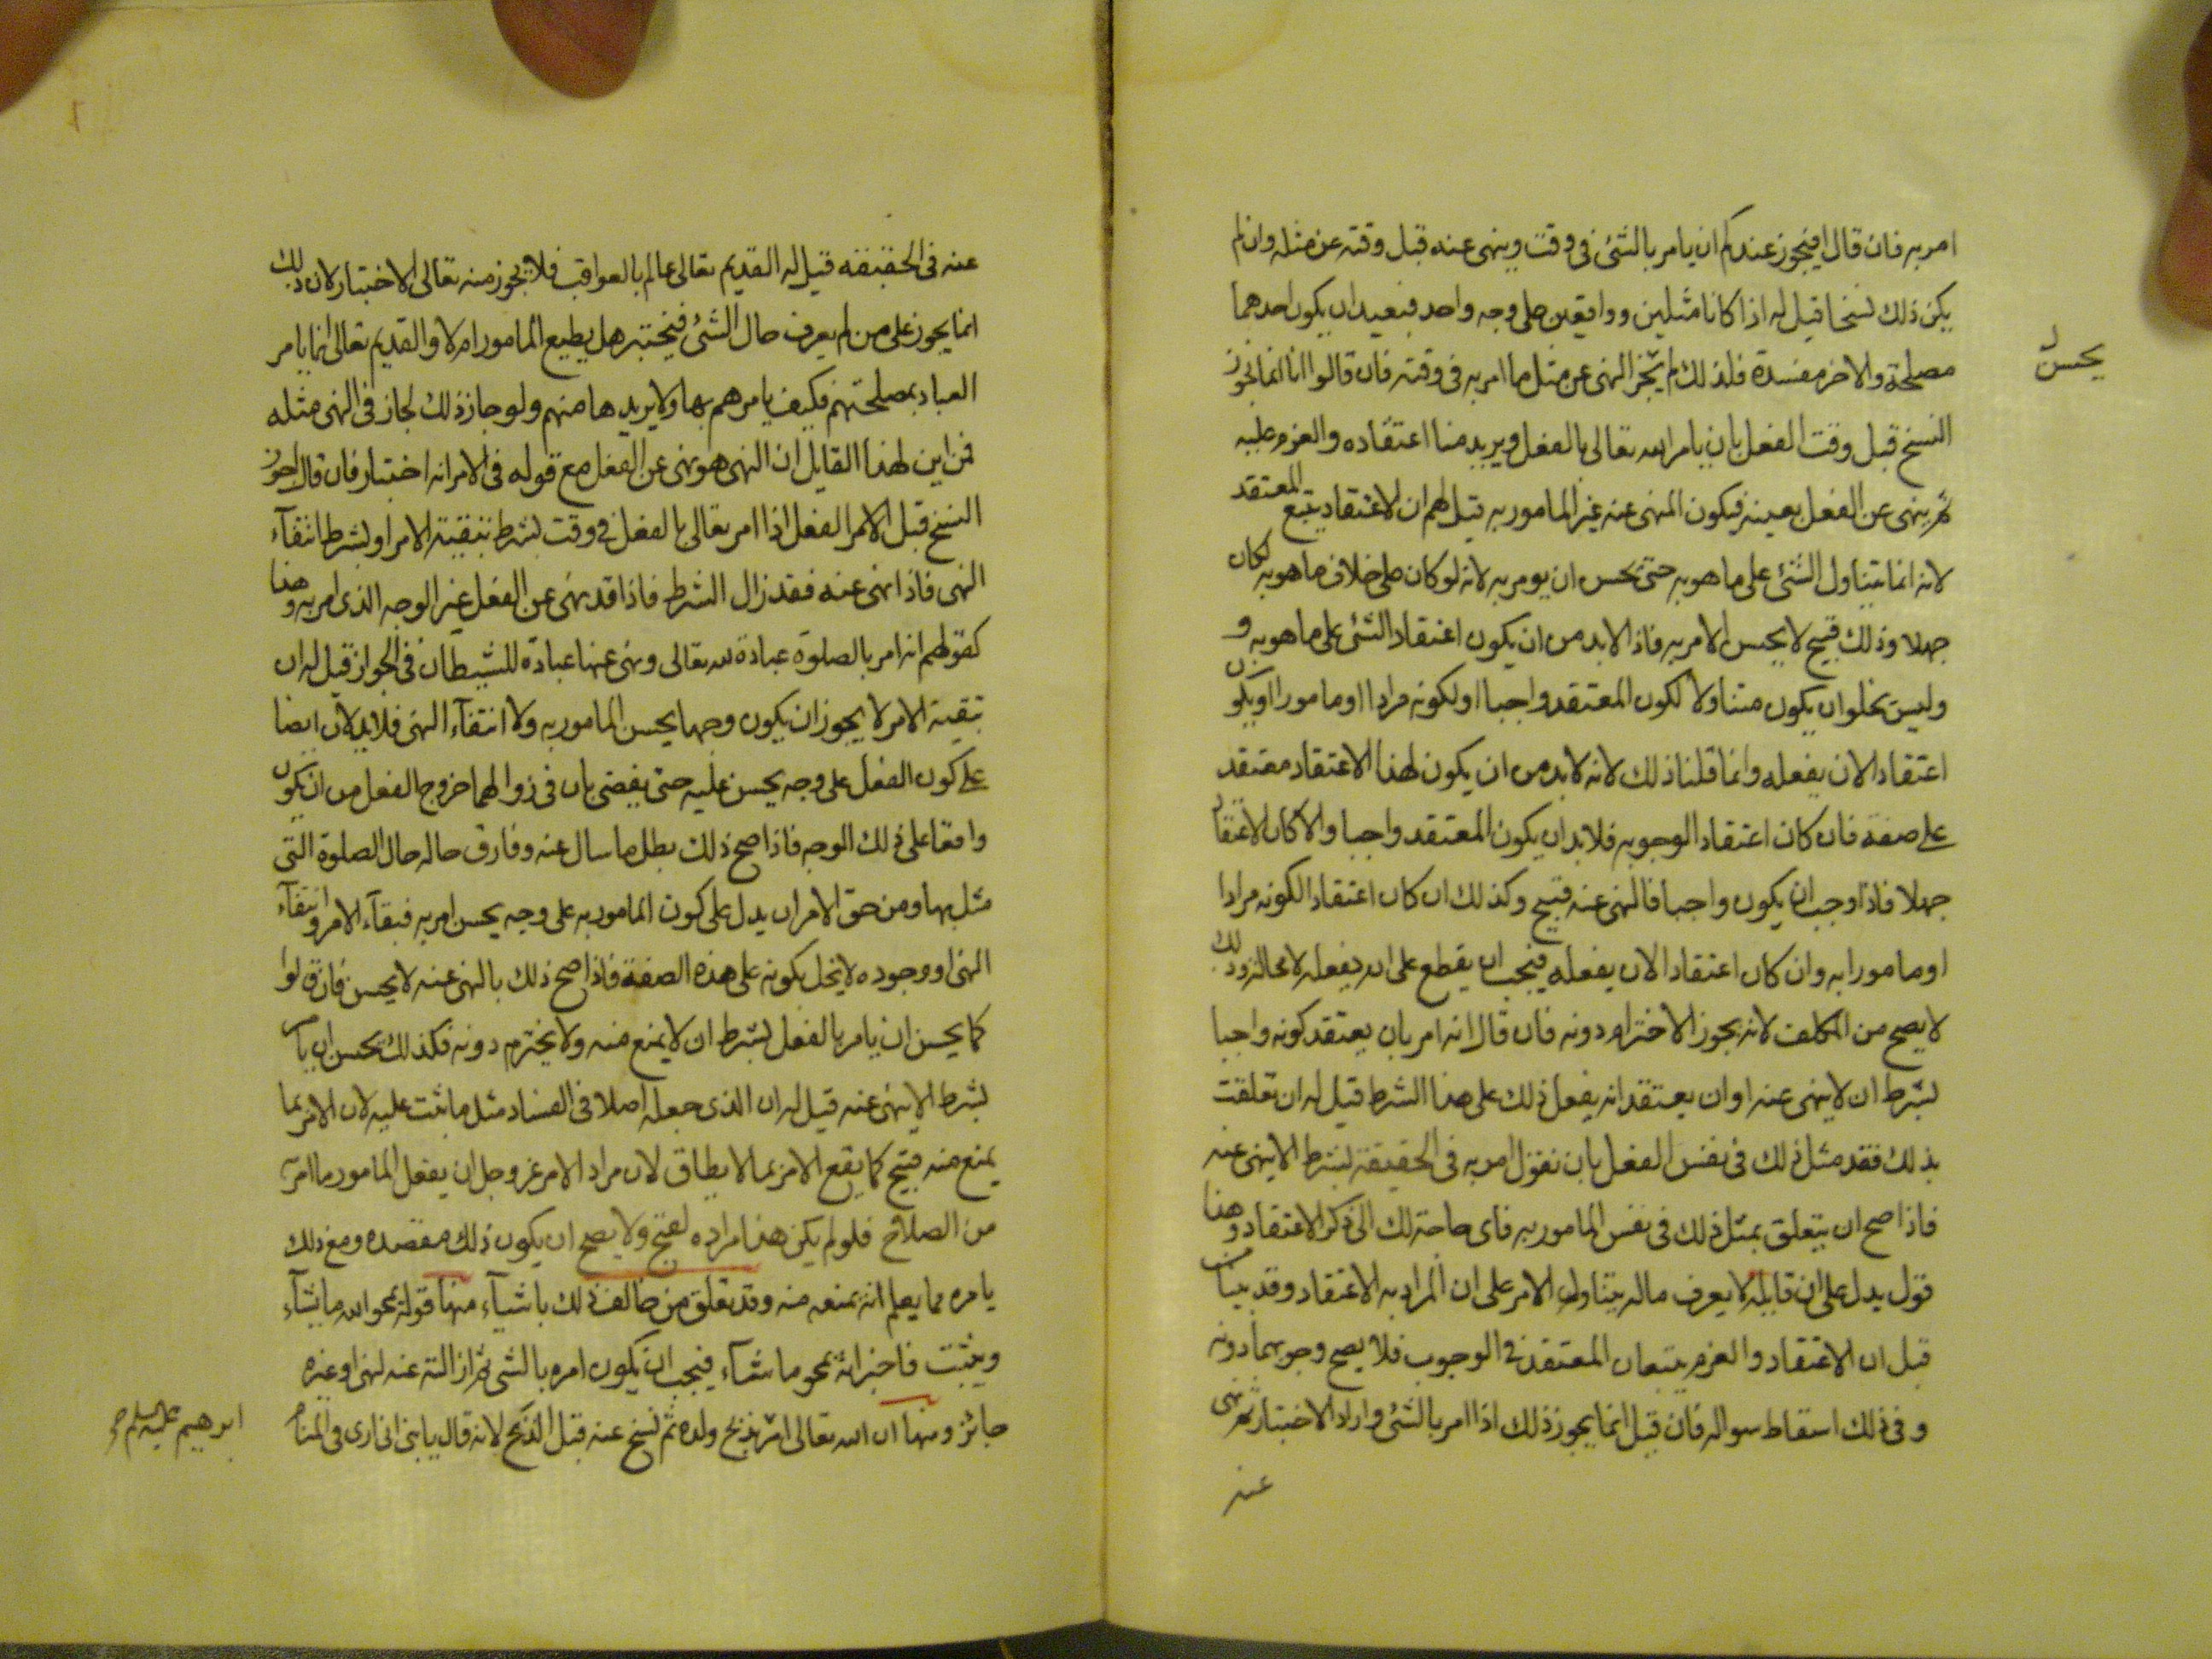 امر به فان قال افيجوز عندكم ان يامر بالشئ فى وقت وينهى عنه قبل وقته عن مثله وان لم
يكن ذلك نسخا قيل له اذا كانا مثلين وواقعين على وجه واحد فبعيد ان يكون احدهما
مصلحة والاخر مفسدة فلذلك لم يجز النهى عن مثل ما امر به فى وقته فان قالوا انا انما نجوز
يحسن
النسخ قبل وقت الفعل بان يامر الله تعالى بالفعل ويريد منا اعتقاده والعزم عليه
ثم ينهى عن الفعل بعينه فيكون المنهى عنه غير المامور به قيل لهم ان الاعتقاد يتبع المعتقد
لانه انما يتناول الشئ على ما هو به حتى يحسن ان يومر به لانه لو كان على خلاف ما هو به لكان
جهلا وذلك قبيح لا يحسن الامر به فاذا لابد من ان يكون اعتقاد الشئ على ما هو به و
وليس يخلو ان يكون متناولا لكون المعتقد واجبا او لكونه مرادا او مامورا او يكون
اعتقادا لان يفعله وانما قلنا ذلك لانه لابد من ان يكون لهذا الاعتقاد معتقد
على صفة فان كان اعتقاد الوجوبه فلابد ان يكون المعتقد واجبا والا كان الاعتقاد
جهلا فاذا وجب ان يكون واجبا فالنهى عنه قبيح وكذلك ان كان اعتقادا لكونه مرادا
او مامورا به وان كان اعتقادا لان يفعله فيجب ان يقطع على انه يفعله لا محالة وذلك
لا يصح من المكلف لانه يجوز الاخترام دونه فان قال انه امر بان يعتقد كونه واجبا
بشرط ان لا ينهى عنه او ان يعتقد انه يفعل ذلك على هذا الشرط قيل له ان تعلقت
بذلك فقد مثل ذلك فى نفس الفعل بان نقول امر به فى الحقيقة بشرط الا ينهى عنه
فاذا صح ان يتعلق بمثل ذلك فى نفس المامور به فاى حاجة لك الى ذكر الاعتقاد وهذا
قول يدل على ان قايله لا يعرف ماله يتناول الامر على ان المراد به الاعتقاد وقد بينا من
قبل ان الاعتقاد والعزم يتبعان المعتقد فى الوجوب فلا يصح وجوبهما دونه
وفى ذلك اسقاط سواله فان قيل انما يجوز ذلك اذا امر بالشئ واراد الاختبار ثم نهى
عنه
عنه فى الحقيقة قيل له القديم تعالى عالم بالعواقب فلا يجوز منه تعالى الاختبار لان ذلك
انما يجوز على من لم يعرف حال الشئ فيختبر هل يطيع المامور ام لا والقديم تعالى انما يامر
العباد بمصلحتهم فكيف يامرهم بها ولا يريدها منهم ولو جاز ذلك لجاز فى النهى مثله
فمن اين لهذا القايل ان النهى هو نهى عن الفعل مع قوله فى الامر انه اختبار فان قال اجوز
النسخ قبل الامر الفعل اذا امر تعالى بالفعل فى وقت بشرط تبقية الامر او بشرط انتفآء
النهى فاذا نهى عنه فقد زال الشرط فاذا قد نهى عن الفعل غير الوجه الذى امر به وهذا
كقولهم انه امر بالصلوة عبادة لله تعالى ونهى عنها عبادة للشيطان فى الجواز قيل له ان
تبقية الامر لا يجوز ان يكون وجها يحسن المامور به ولا انتفآء النهى فلابد لان ايضا
على كون الفعل على وجه يحسن عليه حتى يفضى بان فى زوالهما خروج الفعل من ان يكون
واقعا على ذلك الوجه فاذا صح ذلك بطل ما سال عنه وفارق حاله حال الصلوة التى
مثل بها ومن حق الامر ان يدل على كون المامور به على وجه يحسن امر به فبقآء الامر وانتفآء
النهى او وجوده لا يخل بكونه على هذه الصفة فاذا صح ذلك بالنهى عنه لا يحسن فان قالوا
كما يحسن ان يامر بالفعل بشرط ان لا يمنع منه ولا يخترم دونه فكذلك يحسن ان يامر
بشرط الا ينهى عنه قيل له ان الذى جعله اصلا فى الفساد مثل ما بنيت عليه لان الامر بما
يمنع منه قبيح كما يقبح الامر بما لا يطاق لان مراد الامر عز وجل ان يفعل المامور ما امر به
من الصلاح فلو لم يكن هذا مراده لقبح ولا يصح ان يكون ذلك مقصده ومع ذلك
يامره بما يعلم انه يمنعه منه وقد تعلق من خالف ذلك باشيآء منها قوله يمحو الله ما يشآء
ويثبت فاخبر انه يمحو ما شآء فيجب ان يكون امره بالشى ثم ازالته عنه لنهى او غيره
جائز ومنها ان الله تعالى امر بذبح ولده ثم نسخ عنه قبل الذبح لانه قال يا بنى انى ارى فى المنام
ابرهيم عليه السلم صح